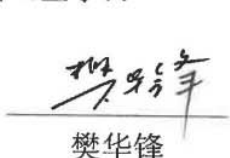 樊华锋
樊华锋